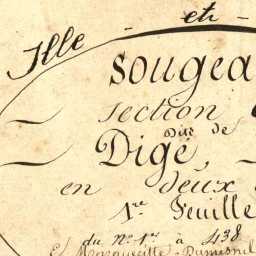 Ille - et -
Sougea
Section
Dite de
Digé,
en deux
1re Feuille
du No 1er à 438